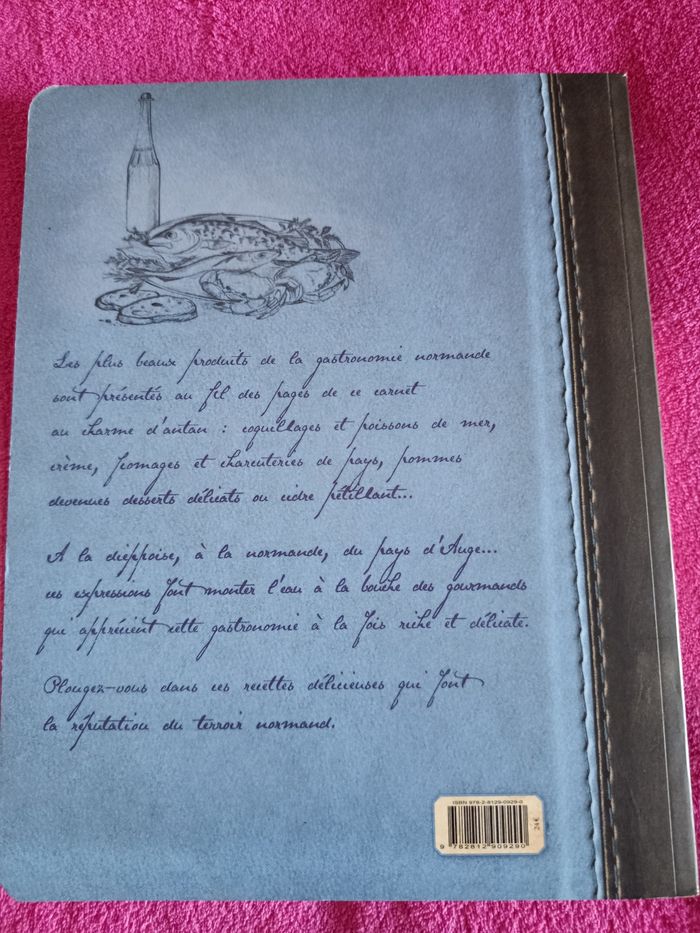 Les plus beaux produits de la gastronomie normande
sont présentés au fil des pages de ce carnet
au charme d'antan : coquillages et poissons de mer,
crème, fromages et charcuteries de pays, pommes
devenues desserts délicats ou cidre pétillant...
A la dieppoise, à la normande, du pays d'Auge...
ces expressions font monter l'eau à la bouche des gourmands
qui apprécient cette gastronomie à la fois riche et délicate.
Plongez-vous dans ces recettes délicieuses qui font
la réputation du terroir normand.
ISBN 978-2-8129-0929-0
24 €
9 782812 909290